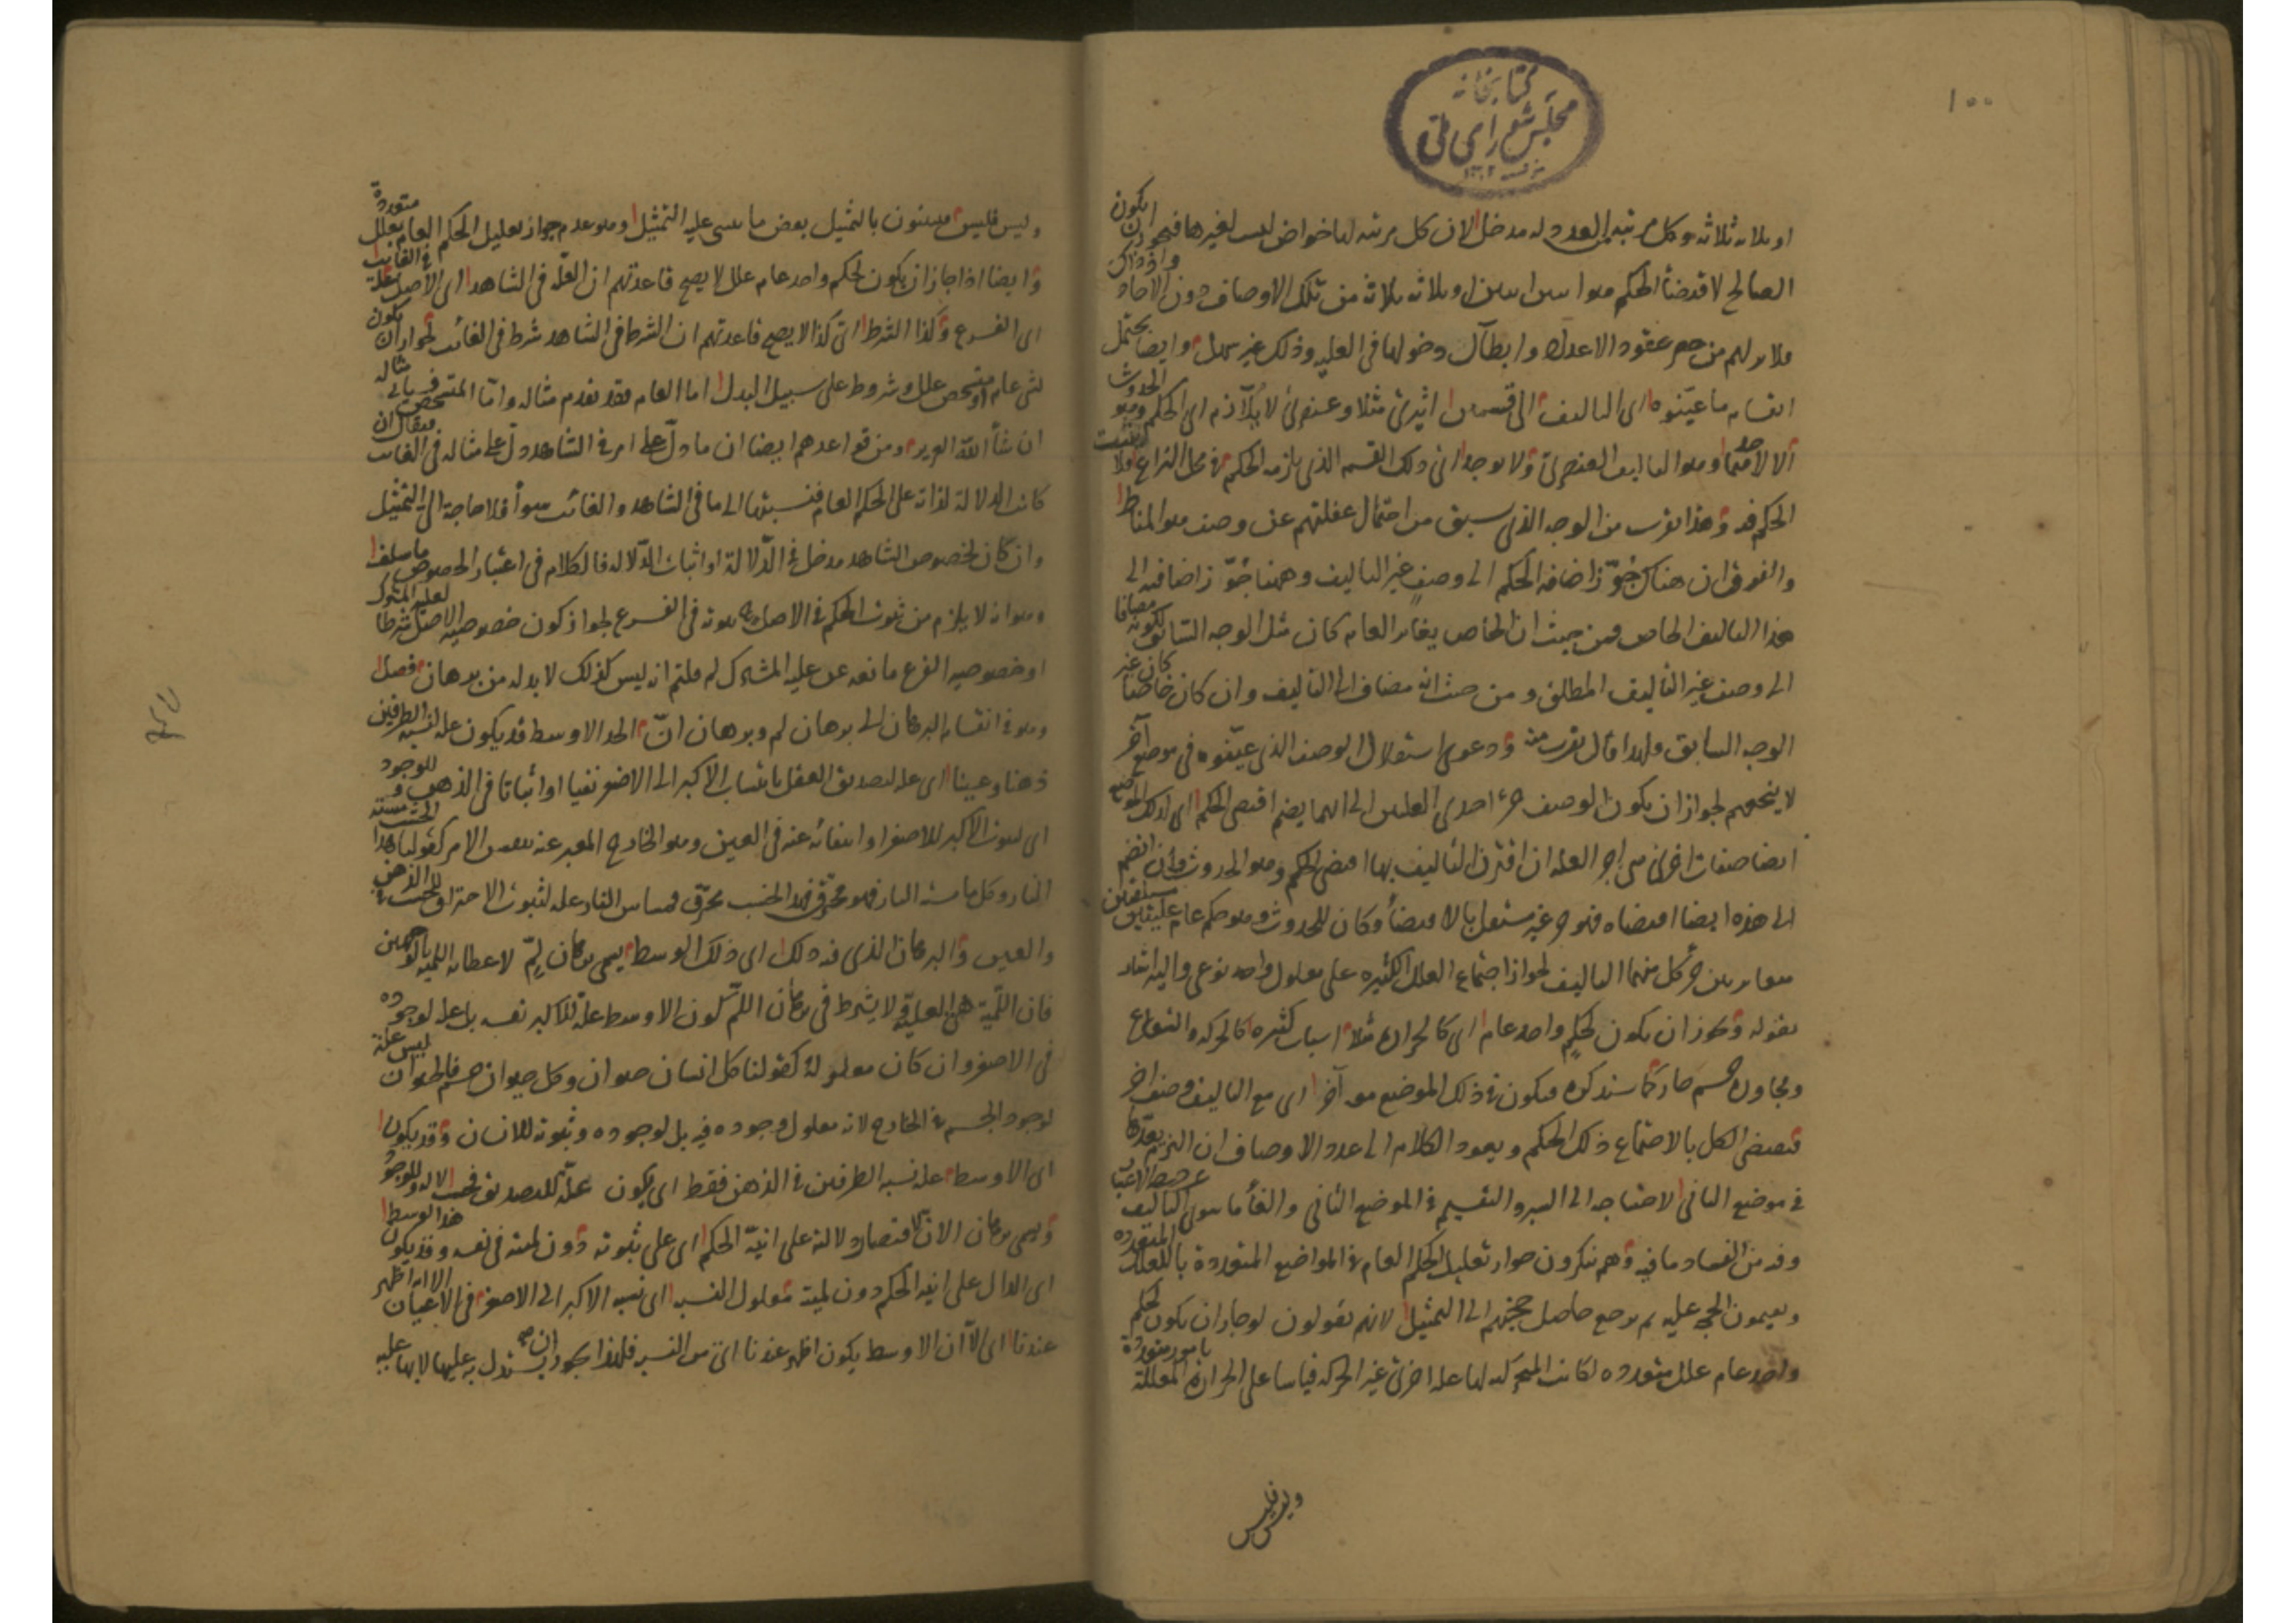 ١٠٠
كتابخانه
مجلس شورای ملی
او ثلاثه ثلاثه وكل مرتبه العدد له مدخل لان كل مرتبه لها خواص ليست لغيرها فيجوز ان يكون
الصالح لاقتضأ الحكم هو اثنين اثنين او ثلاثه ثلاثه من تلك الاوصاف دون الاحاد واذ ذاك
فلابد لهم من حصر عقود الاعداد وابطال دخولها فى العليه وذلك غير سهل وايضا يحتمل
انقسام ما عيّنوه اى التاليف الى قسمين اثيرىّ مثلا وعنصرىّ لا يلازم اى الحكم وهو الحدوث
الا لاحدهما وهو التاليف العنصرىّ ولا يوجد اى ذلك القسم الذى يلزمه الحكم فى محل النزاع
الحكم فيه وهذا يقرب من الوجه الذى سبق من احتمال غفلتهم عن وصف هو المناط
والفرق ان هناك جوّز اضافة الحكم الى وصف غير التاليف وههنا جوّز اضافته الى
هذا التاليف الخاص فمن حيث ان الخاص يغاير العام كان مثل الوجه السابق لكونه مضافا
الى وصف غير التاليف المطلق ومن حيث انه مضاف الى التاليف وان كان خاصا كان غير
الوجه السابق ولهذا قال يقرب منه ودعوى استقلال الوصف الذى عيّنوه فى موضع آخر
لا ينفعهم لجواز ان يكون الوصف جزء احدى العلتين الى ايهما يضم اقتضى الحكم اى لذلك الموضع
ايضا صفات اخرى هى اجزاء العلة ان اقترن التاليف بها اقتضى الحكم وهو الحدوث وان انضم
الى هذه ايضا اقتضاه فهو ج غير مستقل بالاقتضأ وكان للحدوث وهو حكم عام علتين مستقلتين
متغايرتين جزء كل منهما التاليف لجواز اجتماع العلل الكثيره على معلول واحد نوعى واليه اشار
بقوله ويجوز ان يكون لحكم واحد عام اى كالحرارة مثلا اسباب كثيره كالحركه والشعاع
ومجاورة جسم حار كما سنذكره فيكون فى ذلك الموضع معه آخر اى مع التاليف وصف آخر
فيقتضى الكل بالاجتماع ذلك الحكم ويعود الكلام الى عدد الاوصاف ان التزم بعدّها
فى موضع الثانى لاحتياجه الى السبر والتقسيم فى الموضع الثانى والغأ ما سوى التاليف عن حيز الاعتبار
وفيه من الفساد ما فيه وهم ينكرون جواز تعليل الحكم العام فى المواضع المتعددة بالعلل المتعدده
ويقيمون الحجه عليه ثم يرجع حاصل حجتهم الى التمثيل لانهم يقولون لو جاز ان يكون لحكم
واحد عام علل متعدده لكانت المتحركيه لها علة اخرى غير الحركه قياسا على الحرارة المعللة بامور متعددة
وليس فليس
وليس فليس فيثبتون بالتمثيل بعض ما يبتنى عليه التمثيل وهو عدم جواز تعليل الحكم العام بعلل متعددة
وايضا اذا جاز ان يكون لحكم واحد عام علل لا يصح قاعدتهم ان العلّة فى الشاهد اى الاصل علة فى الغائب
اى الفرع وكذا الشرط اى كذا لا يصح قاعدتهم ان الشرط فى الشاهد شرط فى الغائب لجواز ان يكون
لشى عام او متشخص علل وشروط على سبيل البدل اما العام فقد تقدم مثاله وامّا المتشخص فسياتى مثاله
ان شأ الله العزيز ومن قواعدهم ايضا ان ما دلّ على امر فى الشاهد دلّ على مثاله فى الغائب فيقال ان
كانت الدلالة لذاته على الحكم العام فنسبتها الى ما فى الشاهد والغائب سوأ فلا حاجة الى التمثيل
وان كان لخصوص الشاهد مدخل فى الدّلالة او اثبات الدّلاله فالكلام فى اعتبار الخصوص ما سلف
وهو انه لا يلزم من ثبوت الحكم فى الاصل ثبوته فى الفرع لجواز كون خصوصيه الاصل شرطا لعليه المشترك
او خصوصيه الفرع مانعه عن عليه المشترك لم قلتم انه ليس كذلك لا بد له من برهان فصل
وهو فى انقسام البرهان الى برهان لم وبرهان انّ الحد الاوسط قد يكون علة لنسبه الطرفين
ذهنا وعينا اى علة لتصديق العقل بانتساب الاكبر الى الاصغر نفيا او اثباتا فى الذهن وللوجود
اى لثبوت الاكبر للاصغر او انتفائه عنه فى العين وهو الخارج المعبر عنه بنفس الامر كقولنا هذا الخشب مسته
النار وكل ما مسته النار فهو محترق فهذا الخشب محترق فمساس النار علة لثبوت الاحتراق للخشب فى الذهن
والعين والبرهان الذى فيه ذلك اى ذلك الوسط يسمى برهان لِمّ لاعطائه اللميه بالوجهين
فان اللمّية هى العليّه ولا يشترط فى برهان اللمّ كون الاوسط علّة للاكبر نفسه بل علة لوجوده
فى الاصغر وان كان معلولا له كقولنا كل انسان حيوان وكل حيوان جسم فالحيوان ليس علة
لوجود الجسم فى الخارج لانه معلول وجوده فيه بل لوجوده وثبوته للانسان وقد يكون
اى الاوسط علة نسبه الطرفين فى الذهن فقط اى يكون علّة للتصديق فحسب لا له وللوجود
ويسمى برهان الانّ لاقتصار دلالته على انيّة الحكم اى على ثبوته دون لميته فى نفسه وقد يكون هذا الوسط
اى الدال على انية الحكم دون لميته معلول النسبه اى نسبه الاكبر الى الاصغر فى الاعيان الا انه اظهر
عندنا اى الا ان الاوسط يكون اظهر عندنا اى من النسبه فلهذا يجوز ان يستدل به عليها لا بها عليه